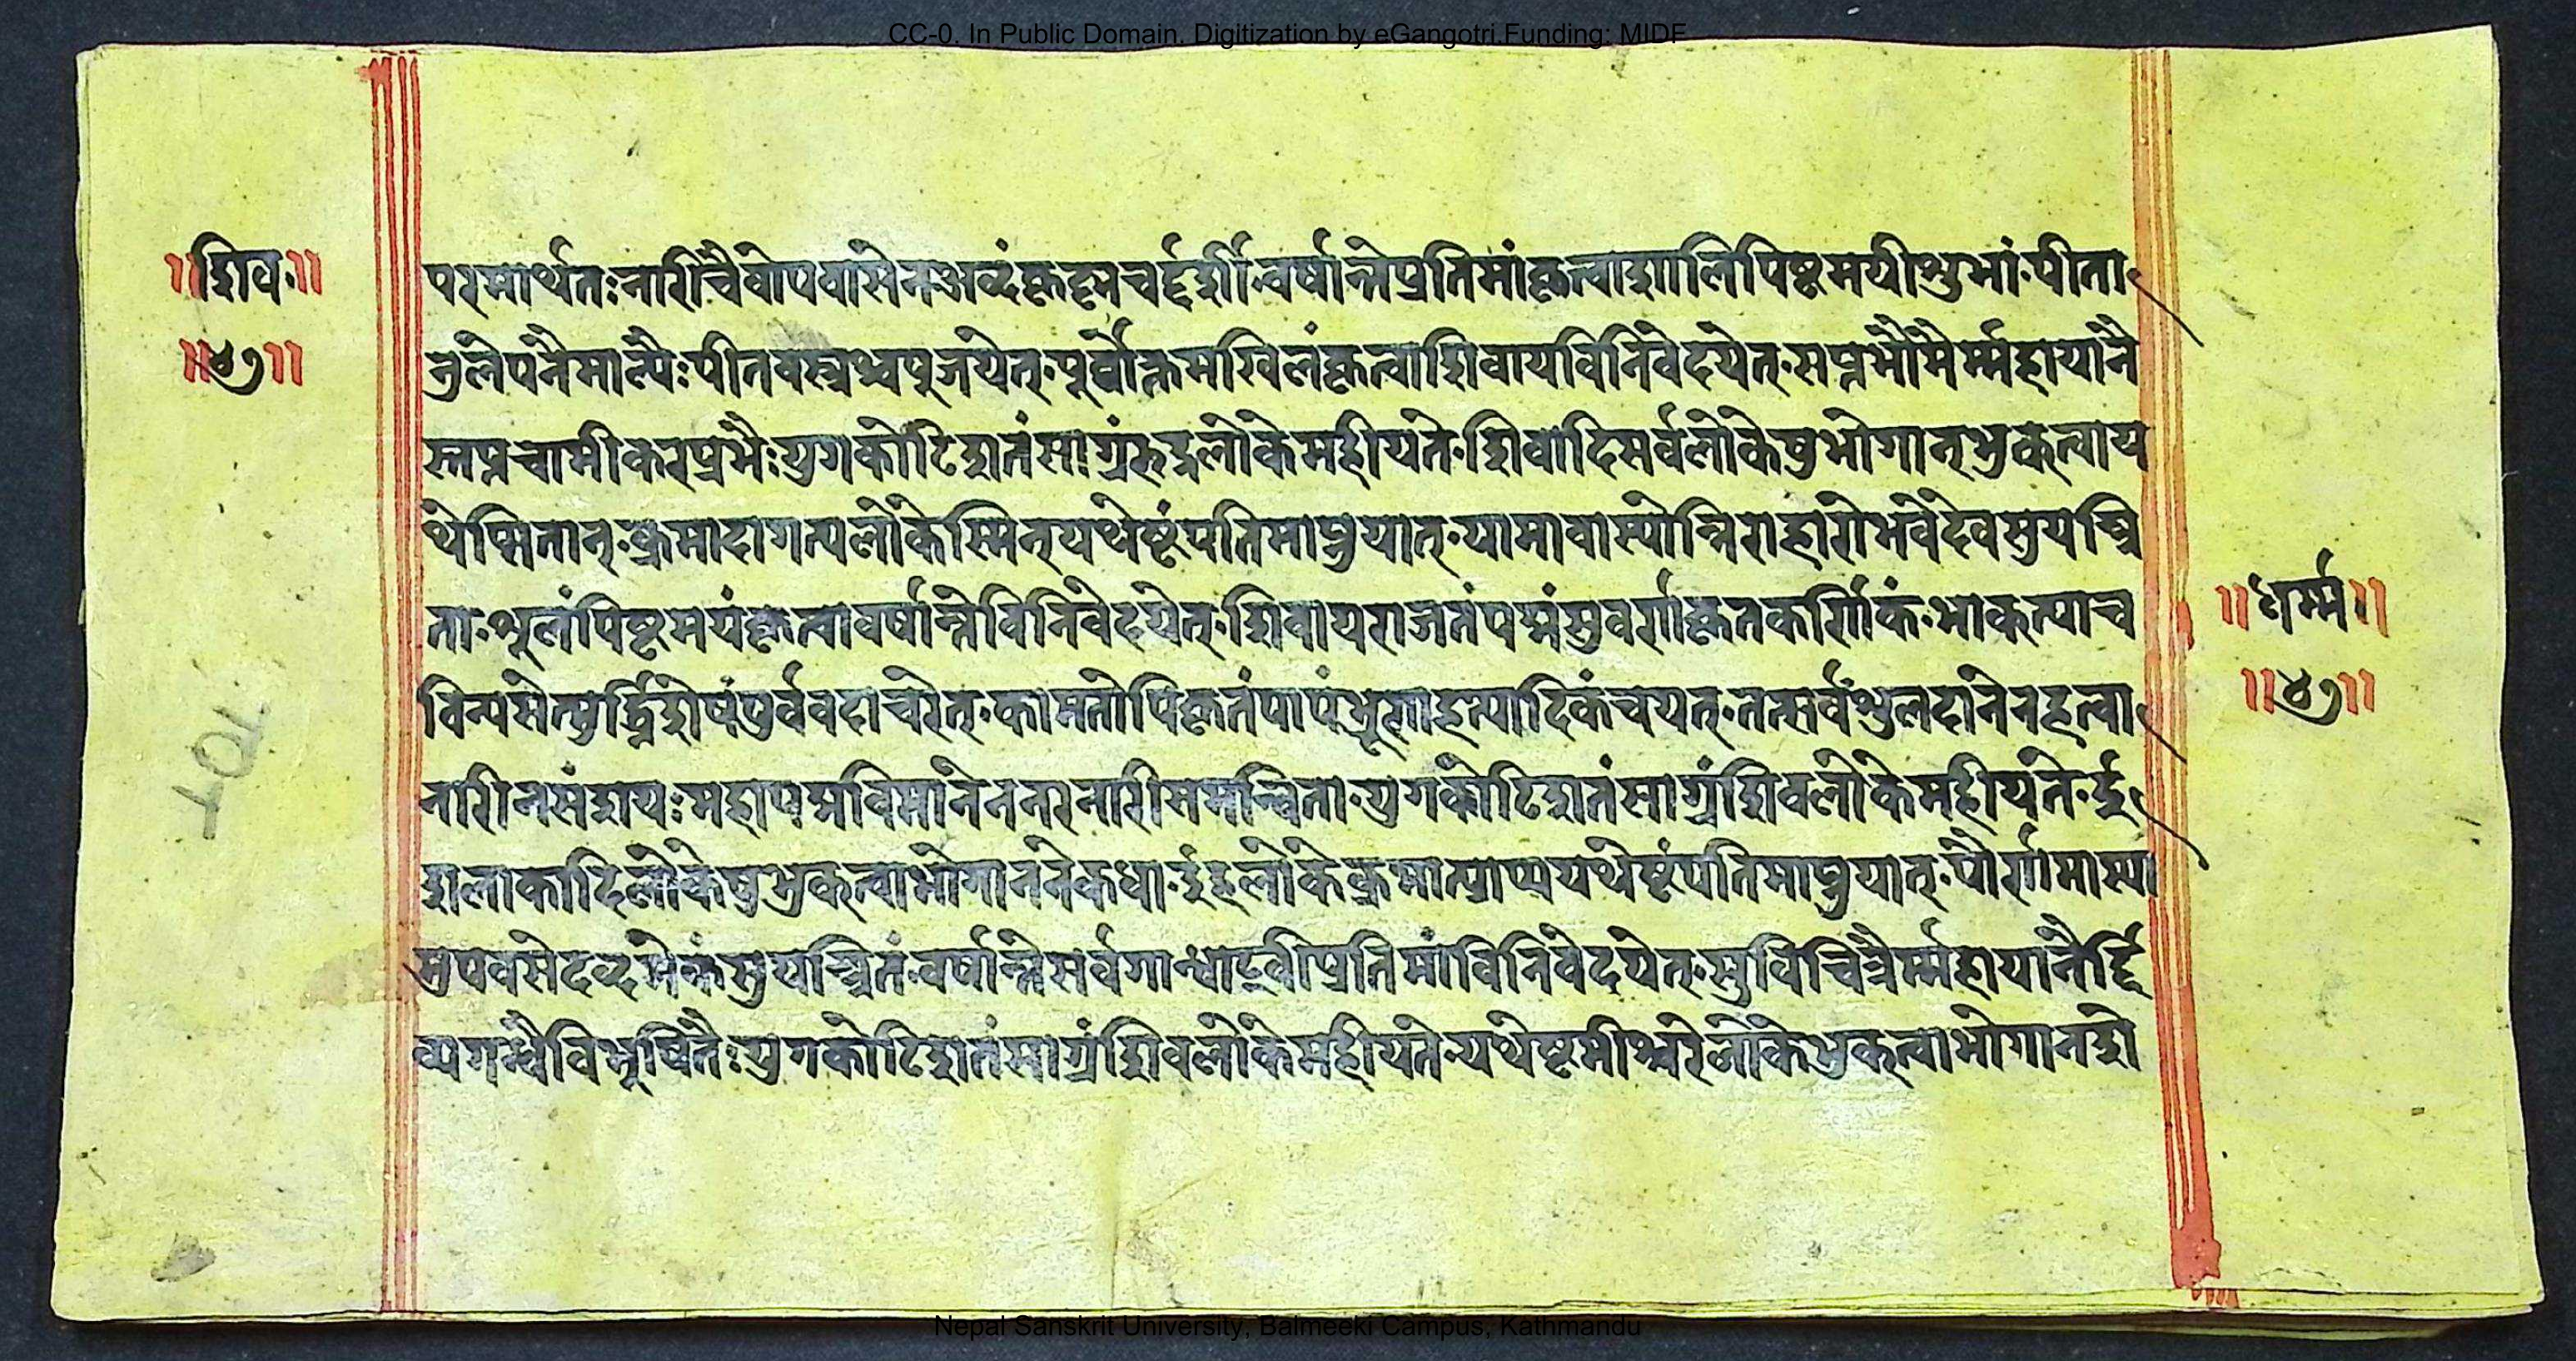 CC-0. In Public Domain. Digitization by eGangotri.Funding: MIDF
॥शिव॥
॥४७॥
परमार्थतः नारीचैवोपवासेन अब्दंकृष्णचतुर्द्दशीं वर्षान्तेप्रतिमांकृत्वाशालिपिष्टमयीशुभां पीता
नुलेपनैमाल्यैः पीतवस्त्रश्चपूजयेत् पूर्वोक्तमखिलंकृत्वाशिवायविनिवेदयेत् सप्तभौमैर्म्महायानै
स्तप्तचामीकरप्रभैः युगकोटिशतंसाग्रंरुद्रलोकेमहीयते शिवादिसर्वलोकेषुभोगान्भुक्त्वाय
थेप्सितान् क्रमादागत्यलोकेस्मिन्यथेष्टंपतिमाप्नुयात् यामावास्योन्निराहारोभवेदेवसुयन्त्रि
ता शूलंपिष्टमयंकृत्वावर्षान्तेविनिवेदयेत् शिवायराजतंपद्मंसुवर्णकृतकर्णिकं भाक्त्याच
विन्यसेत्मुर्द्ध्निशेषंपूर्ववदाचरेत् कामतोपिकृतंपापंभ्रूणहत्यादिकंचयत् तत्सर्वंशुलदानेनहत्वा
नारीनसंशयः महापद्मविमानेननरनारीसमन्विता युगकोटिशतंसाग्रंशिवलोकेमहीयते ई
शलोकादिलोकेषुभुक्त्वाभोगाननेकधा इहलोकेक्रमात्प्राप्ययथेष्टंपतिमाप्नुयात् पौर्णमास्या
मुपवसेदब्दमेकंसुयन्त्रितं वर्षान्तेसर्वगान्धाढ्वीप्रतिमांविनिवेदयेत् सुविचित्रैर्म्महायानैर्द्दि
व्यगन्धैविभूषितैः युगकोटिशतंसाग्रंशिवलोकेमहीयते यथेष्टमीश्वरेलोकेभुक्त्वाभोगानशे
॥धर्म्म॥
॥४७॥
Nepal Sanskrit University, Balmeeki Campus, Kathmandu